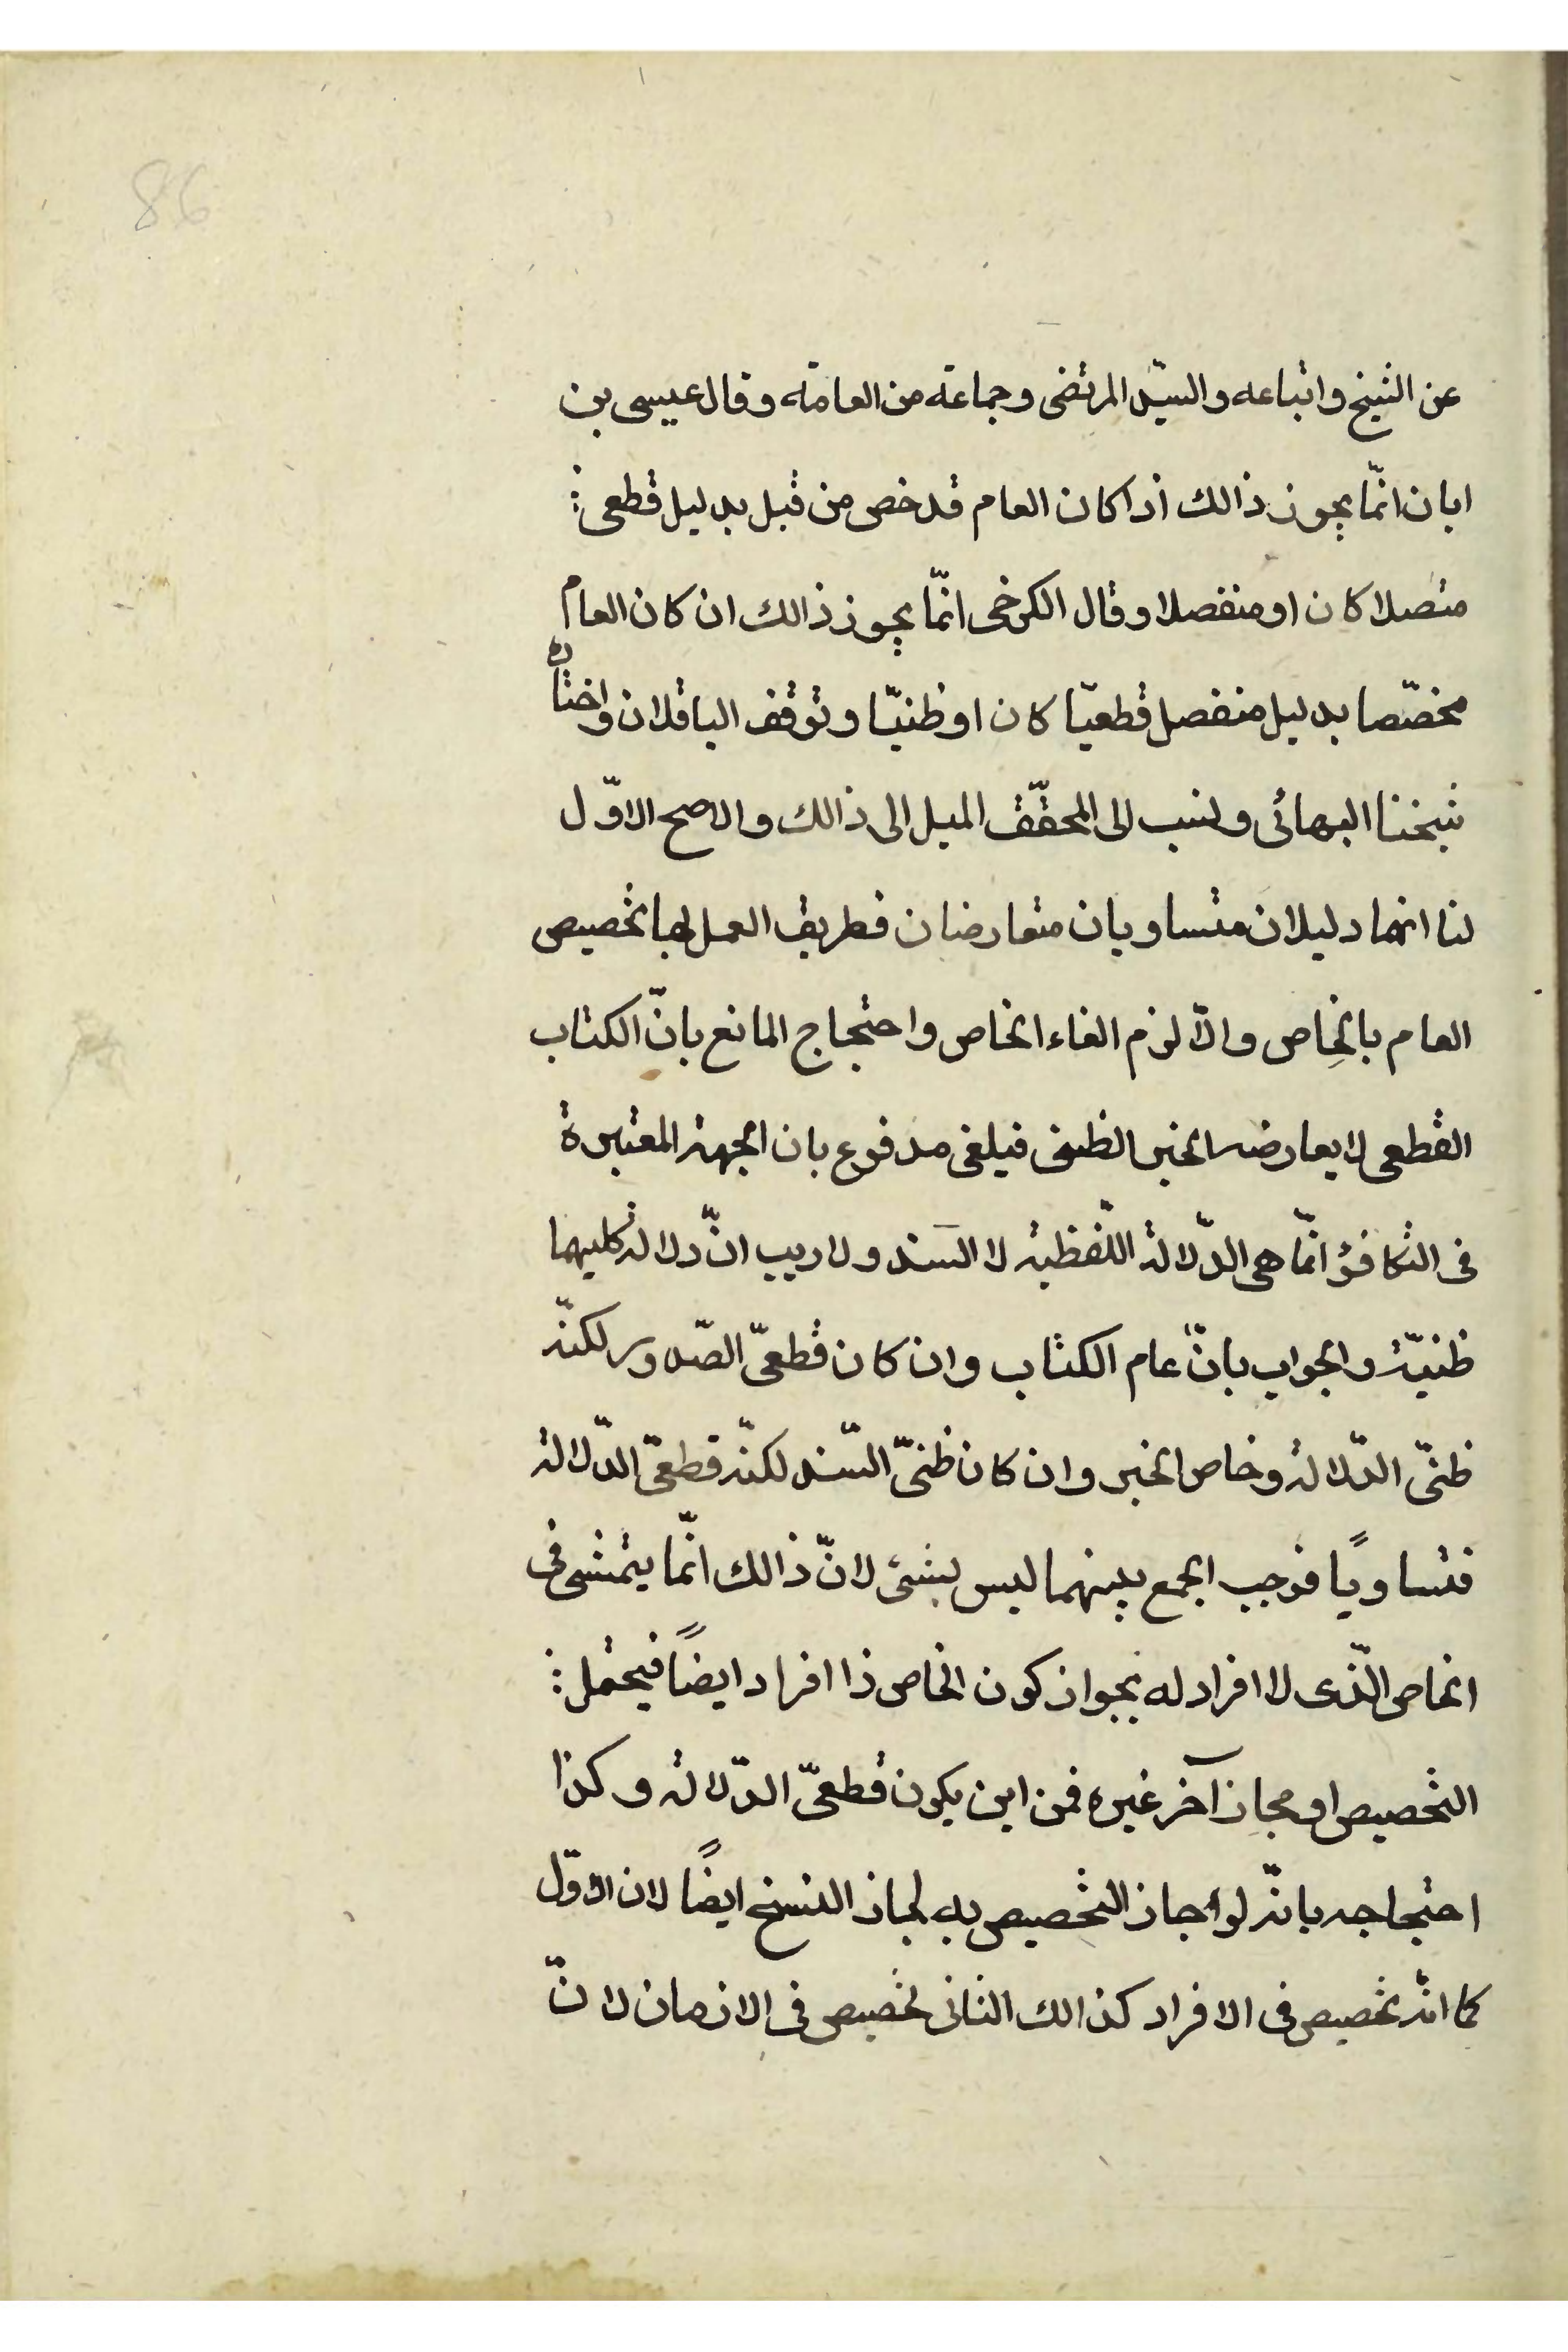 86
عن الشيخ واتباعه والسيّد المرتضى وجماعة من العامّة وقال عيسى بن
ابان انّما يجوز ذالك اذا كان العام قد خص من قبل بدليل قطعى
متصلا كان او منفصلا وقال الكرخى انّما يجوز ذالك ان كان العام
مخصّصا بدليل منفصل قطعيّا كان او ظنيّا وتوقف الباقلان واختاره
شيخنا البهائى ونسب الى المحقّق الميل الى ذالك والاصح الاوّل
لنا انهما دليلان متساويان متعارضان فطريق العمل بهما تخصيص
العام بالخاص والّا لزم الغاء الخاص واحتجاج المانع بانّ الكتاب
القطعى لا يعارضه الخبر الظنى فيلغى مدفوع بان الجهة المعتبرة
فى التكافؤ انّما هى الدّلالة اللّفظية لا السند ولا ريب انّ دلالة كليهما
ظنيّة والجواب بانّ عام الكتاب وان كان قطعىّ الصّدور لكنّه
ظنىّ الدّلالة وخاص الخبر وان كان ظنىّ السّند لكنّه قطعىّ الدّلالة
فتساويًا فوجب الجمع بينهما ليس بشئ لانّ ذالك انّما يتمشى فى
الخاص الّذى لا افراد له بجواز كون الخاص ذا افراد ايضًا فيحتمل
التخصيص او مجاز آخر غيره فمن اين يكون قطعىّ الدّلالة وكذا
احتجاجه بانّه لو جاز التخصيص به لجاز النسخ ايضًا لان الاوّل
كما انّه تخصيص فى الافراد كذالك الثانى تخصيص فى الازمان لانّ